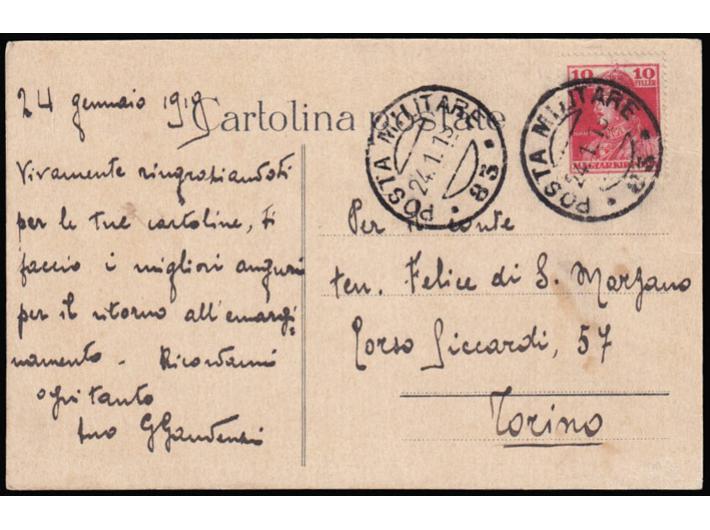 24 gennaio 1919
Cartolina postale
Vivamente ringraziandoti
per le tue cartoline, ti
faccio i migliori auguri
per il ritorno all'emargi-
namento. Ricordami
ogni tanto
tuo GGaudenzi
POSTA MILITARE
24.1.19
83
10 10
FILLÉR
MAGYAR KIR.
POSTA MILITARE
24.1.19
83
Per il conte
ten. Felice di S. Marzano
Corso Siccardi, 57
Torino